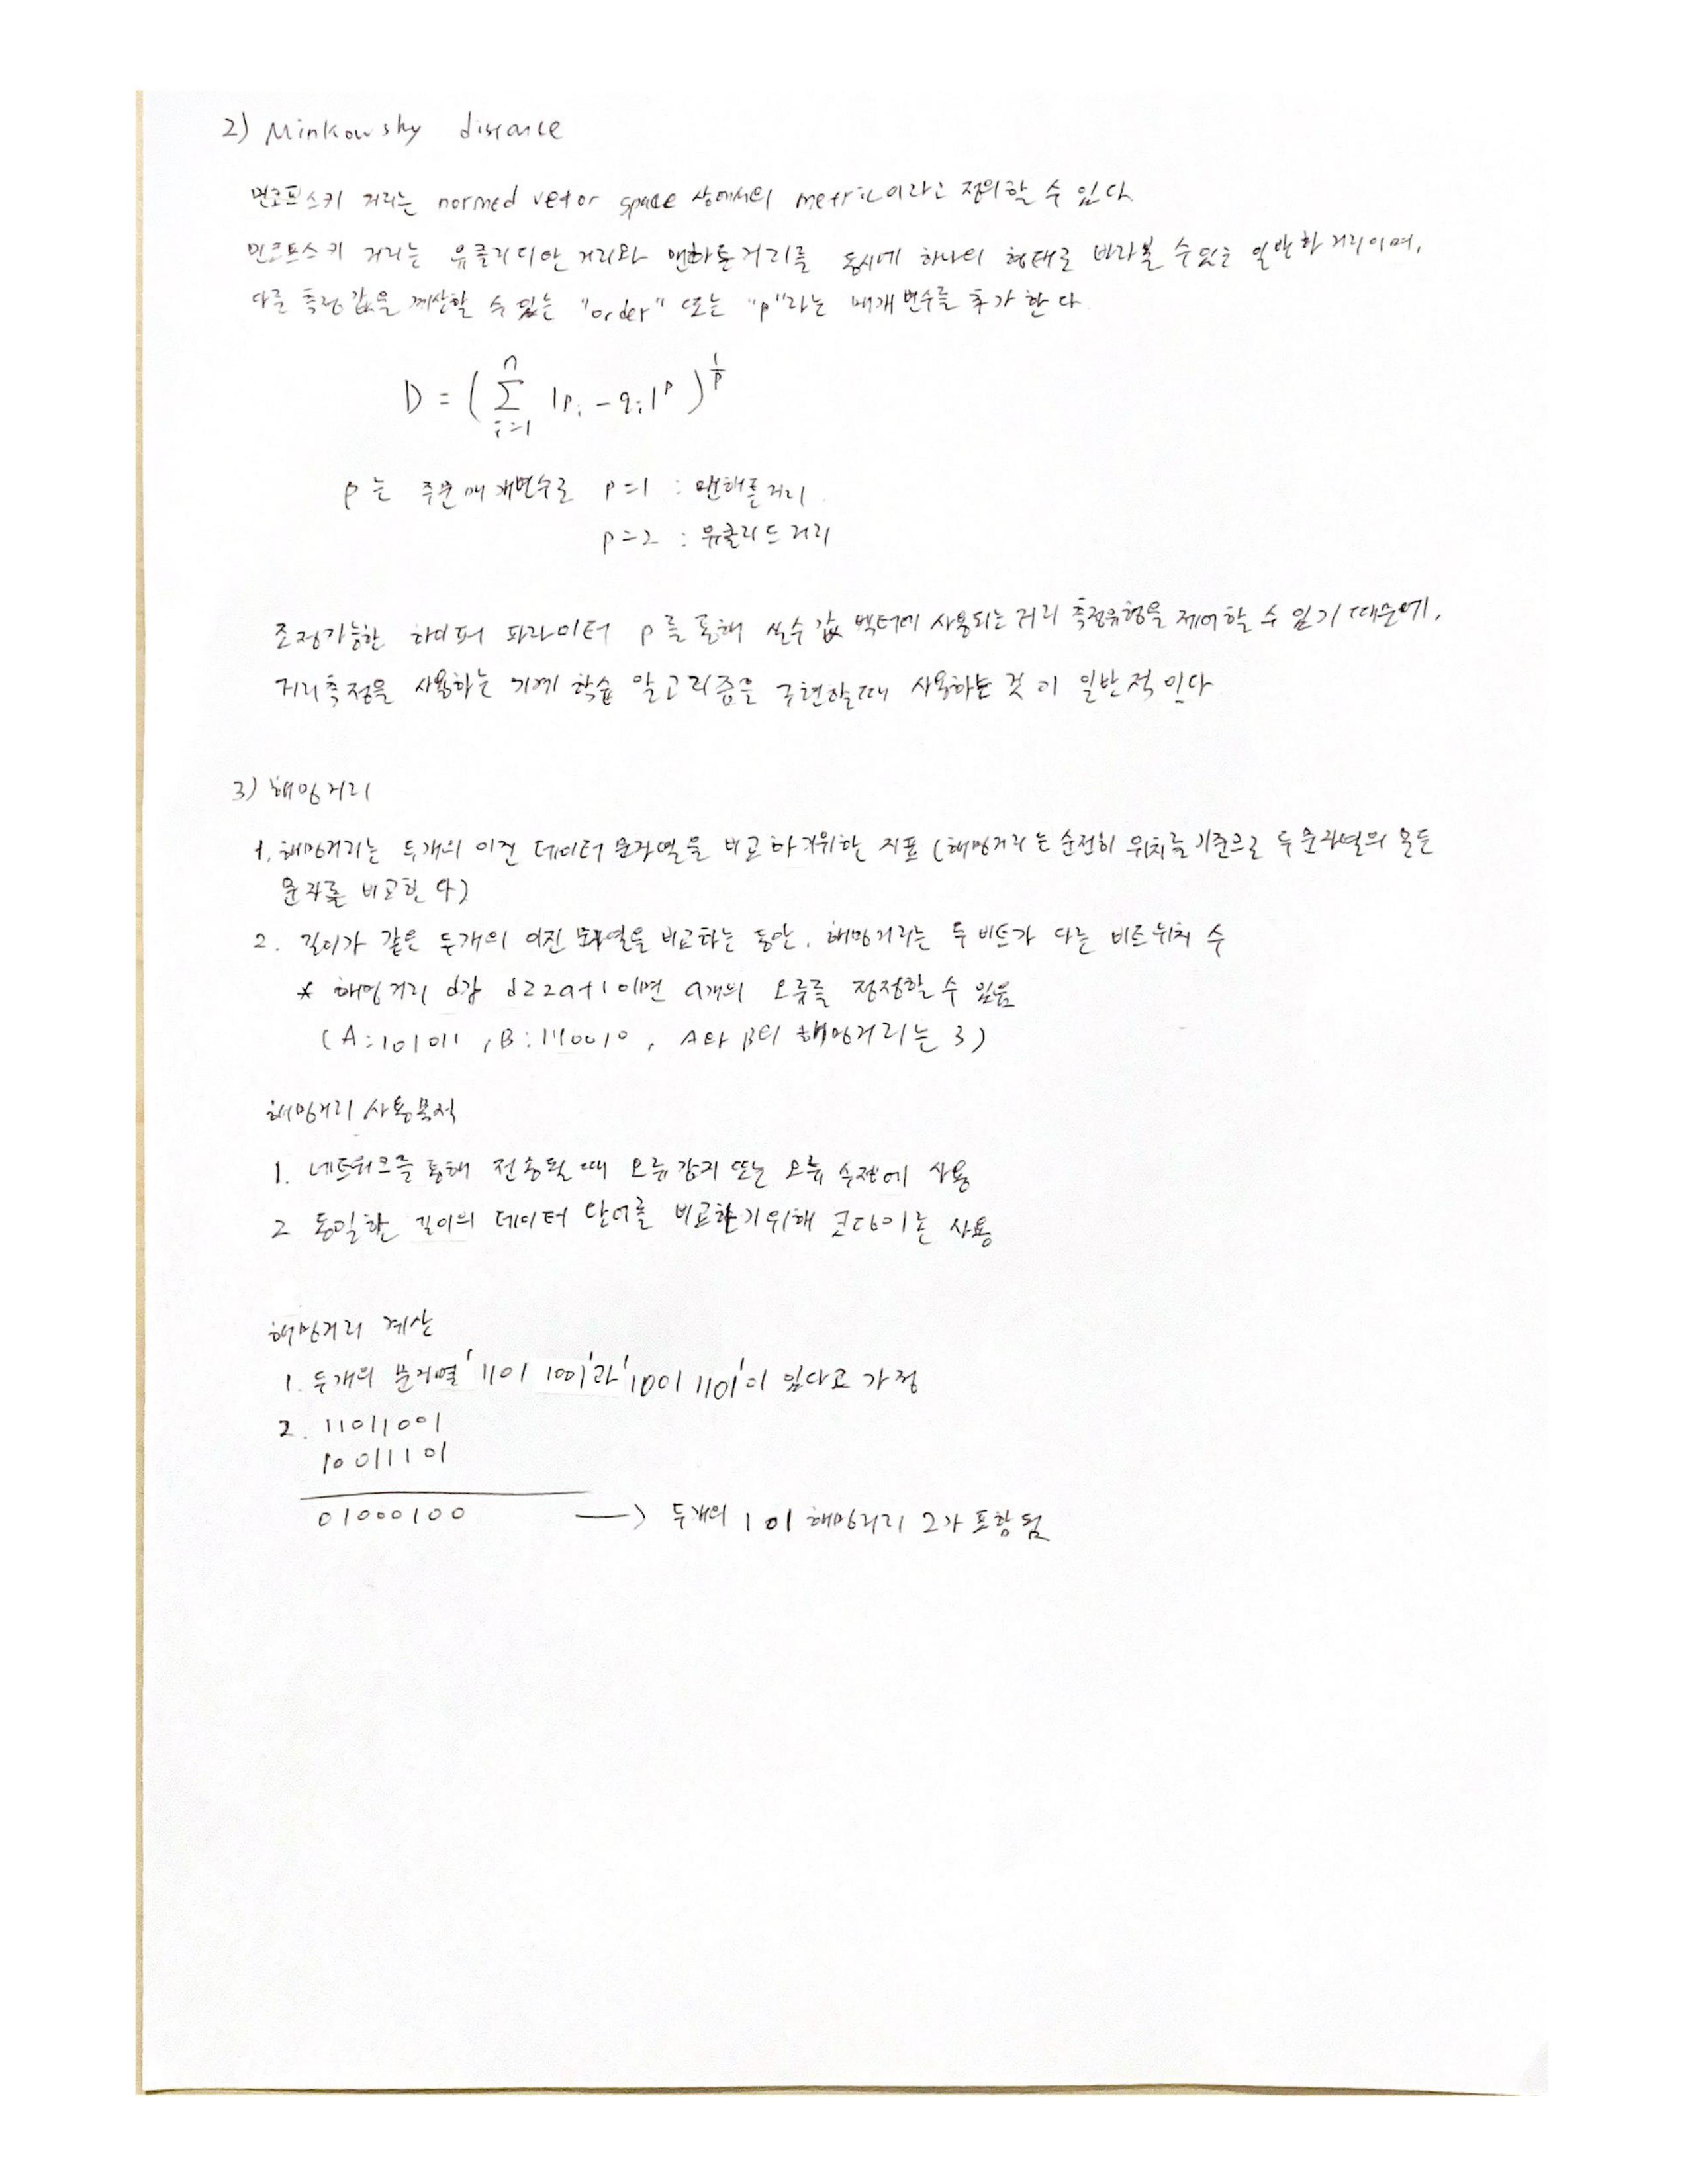 2) Minkowsky distance
민코프스키 거리는 normed vetor space 상에서의 metric이라고 정의할 수 있다
민코프스키 거리는 유클리디안 거리와 맨하튼거리를 동시에 하나의 형태로 바라볼 수 있는 일반화 거리이며,
다른 측정 값을 계산할 수 있는 "order" 또는 "p"라는 매개변수를 추가한다
D = ( \sum_{i=1}^{n} |p_i - q_i|^p )^{\frac{1}{p}}
p는 주문매개변수로 p=1 : 맨해튼거리.
p=2 : 유클리드거리
조정가능한 하이퍼 파라미터 p를 통해 실수 값 벡터에 사용되는 거리 측정유형을 제어할 수 있기 때문에,
거리측정을 사용하는 기계 학습 알고리즘을 구현할때 사용하는 것이 일반적이다
3) 해밍거리
1. 해밍거리는 두개의 이진 데이터 문자열을 비교하기위한 지표 (해밍거리는 순전히 위치를 기준으로 두 문자열의 모든
문자를 비교한다)
2. 길이가 같은 두개의 이진 문자열을 비교하는 동안, 해밍거리는 두 비트가 다른 비트 위치 수
* 해밍거리 d값 d≥2a+1 이면 a개의 오류를 정정할 수 있음
(A:101011, B:110010, A와 B의 해밍거리는 3)
해밍거리 사용목적
1. 네트워크를 통해 전송될 때 오류감지 또는 오류 수정에 사용
2 동일한 길이의 데이터 단어를 비교하기위해 코딩이론 사용
해밍거리 계산
1. 두개의 문자열 '1101 1001'과 '1001 1101'이 있다고 가정
2. 11011001
10011101
01000100 → 두개의 1 이 해밍거리 2가 포함됨